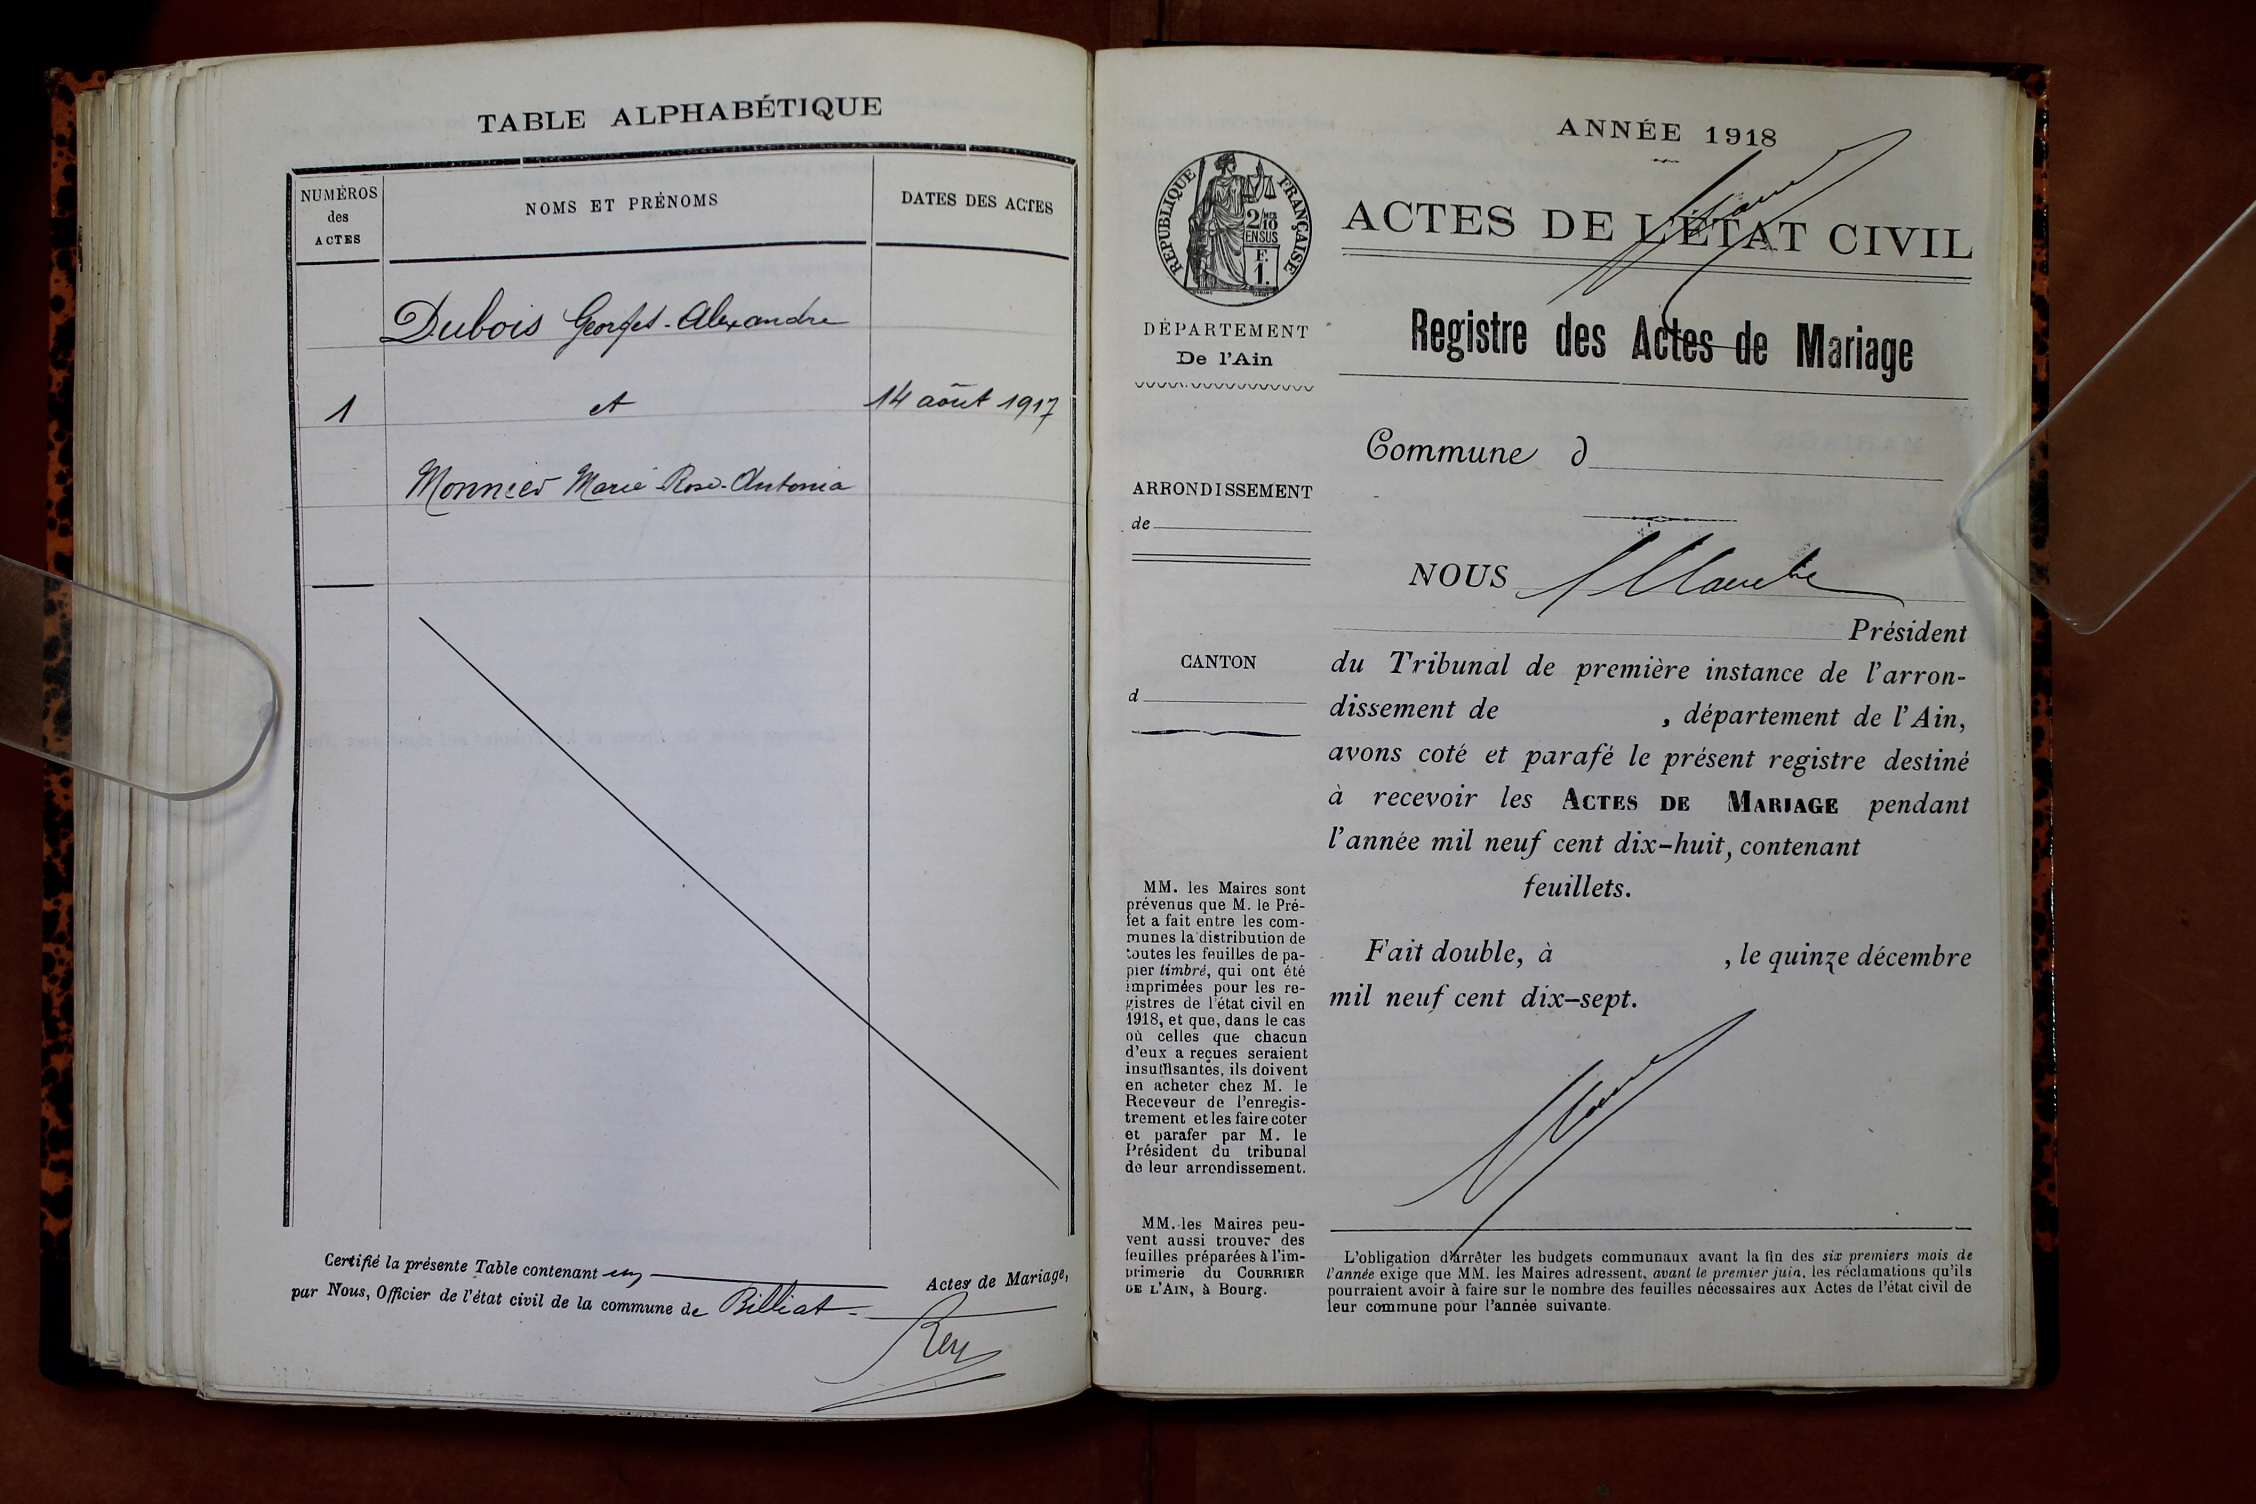 TABLE ALPHABÉTIQUE
NUMÉROS
des
ACTES
NOMS ET PRÉNOMS
DATES DES ACTES
Dubois Georges-Alexandre
1
et
14 août 1917
Monnier Marie-Rose-Antonia
Certifié la présente Table contenant un Actes de Mariage,
par Nous, Officier de l'état civil de la commune de Billiat
Rey
ANNÉE 1918
ACTES DE L'ÉTAT CIVIL
Registre des Actes de Mariage
RÉPUBLIQUE FRANÇAISE
2/10
EN SUS
F.
1.
DÉPARTEMENT
De l'Ain
ARRONDISSEMENT
de
CANTON
d
MM. les Maires sont
prévenus que M. le Pré-
fet a fait entre les com-
munes la distribution de
toutes les feuilles de pa-
pier timbré, qui ont été
imprimées pour les re-
gistres de l'état civil en
1918, et que, dans le cas
où celles que chacun
d'eux a reçues seraient
insuffisantes, ils doivent
en acheter chez M. le
Receveur de l'enregis-
trement et les faire coter
et parafer par M. le
Président du tribunal
de leur arrondissement.
MM. les Maires peu-
vent aussi trouver des
feuilles préparées à l'im-
primerie du COURRIER
DE L'AIN, à Bourg.
Commune d
NOUS
Président
du Tribunal de première instance de l'arron-
dissement de , département de l'Ain,
avons coté et parafé le présent registre destiné
à recevoir les ACTES DE MARIAGE pendant
l'année mil neuf cent dix-huit, contenant
feuillets.
Fait double, à , le quinze décembre
mil neuf cent dix-sept.
L'obligation d'arrêter les budgets communaux avant la fin des six premiers mois de
l'année exige que MM. les Maires adressent, avant le premier juin, les réclamations qu'ils
pourraient avoir à faire sur le nombre des feuilles nécessaires aux Actes de l'état civil de
leur commune pour l'année suivante.